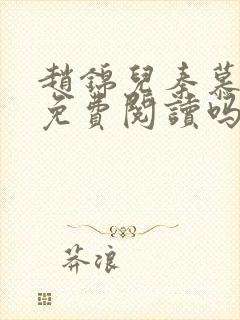 趙錦兒秦慕
免費閱讀嗎
莽浪